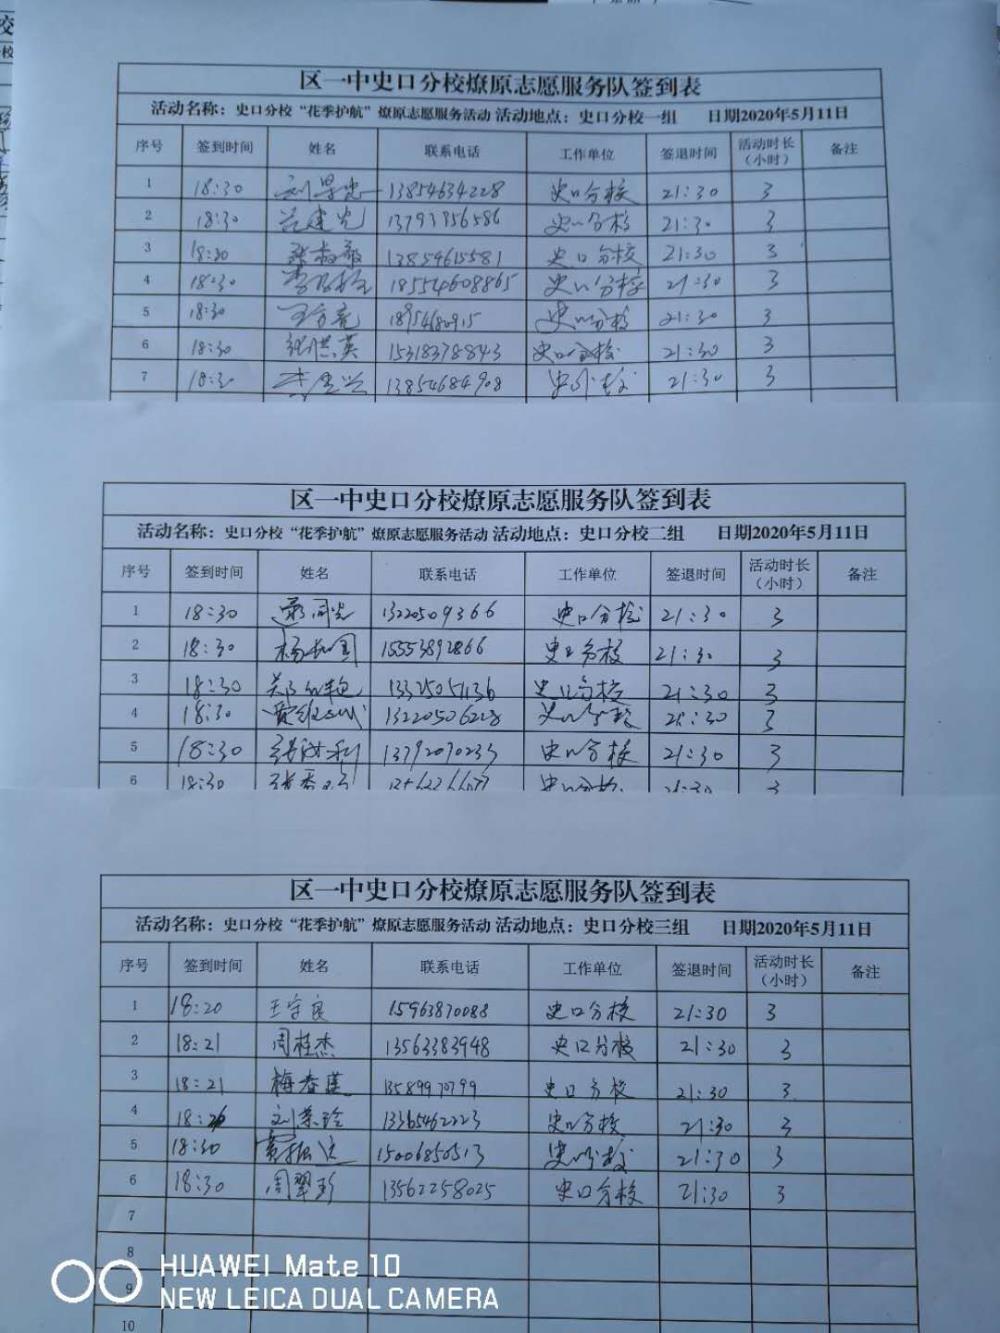 区一中史口分校燎原志愿服务队签到表
活动名称：史口分校“花季护航”燎原志愿服务活动 活动地点：史口分校一组 日期2020年5月11日
序号 签到时间 姓名 联系电话 工作单位 签退时间 活动时长（小时） 备注
1 18:30 13854634228 史口分校 21:30 3
2 18:30 史口分校 21:30 3
3 史口分校 21:30 3
4 18:30 18554608865 史口分校 21:30 3
5 18:30 史口分校 21:30 3
6 18:30 张洪英 15318378843 史口分校 21:30 3
7 18:30 13854684908 史口分校 21:30 3
区一中史口分校燎原志愿服务队签到表
活动名称：史口分校“花季护航”燎原志愿服务活动 活动地点：史口分校二组 日期2020年5月11日
序号 签到时间 姓名 联系电话 工作单位 签退时间 活动时长（小时） 备注
1 18:30 13220509366 史口分校 21:30 3
2 18:30 15553892866 史口分校 21:30 3
3 18:30 史口分校 21:30 3
4 18:30 13220506228 史口分校 21:30 3
5 18:30 13792090233 史口分校 21:30 3
6 18:30 史口分校 21:30 3
区一中史口分校燎原志愿服务队签到表
活动名称：史口分校“花季护航”燎原志愿服务活动 活动地点：史口分校三组 日期2020年5月11日
序号 签到时间 姓名 联系电话 工作单位 签退时间 活动时长（小时） 备注
1 18:20 王守良 15963870088 史口分校 21:30 3
2 18:21 周桂杰 13563383948 史口分校 21:30 3
3 18:21 梅香莲 13589970799 史口分校 21:30 3
4 刘荣玲 13365462223 史口分校 21:30 3
5 18:30 15006850513 史口分校 21:30 3
6 18:30 周翠珍 13562258025 史口分校 21:30 3
7
8
9
10
HUAWEI Mate 10
NEW LEICA DUAL CAMERA